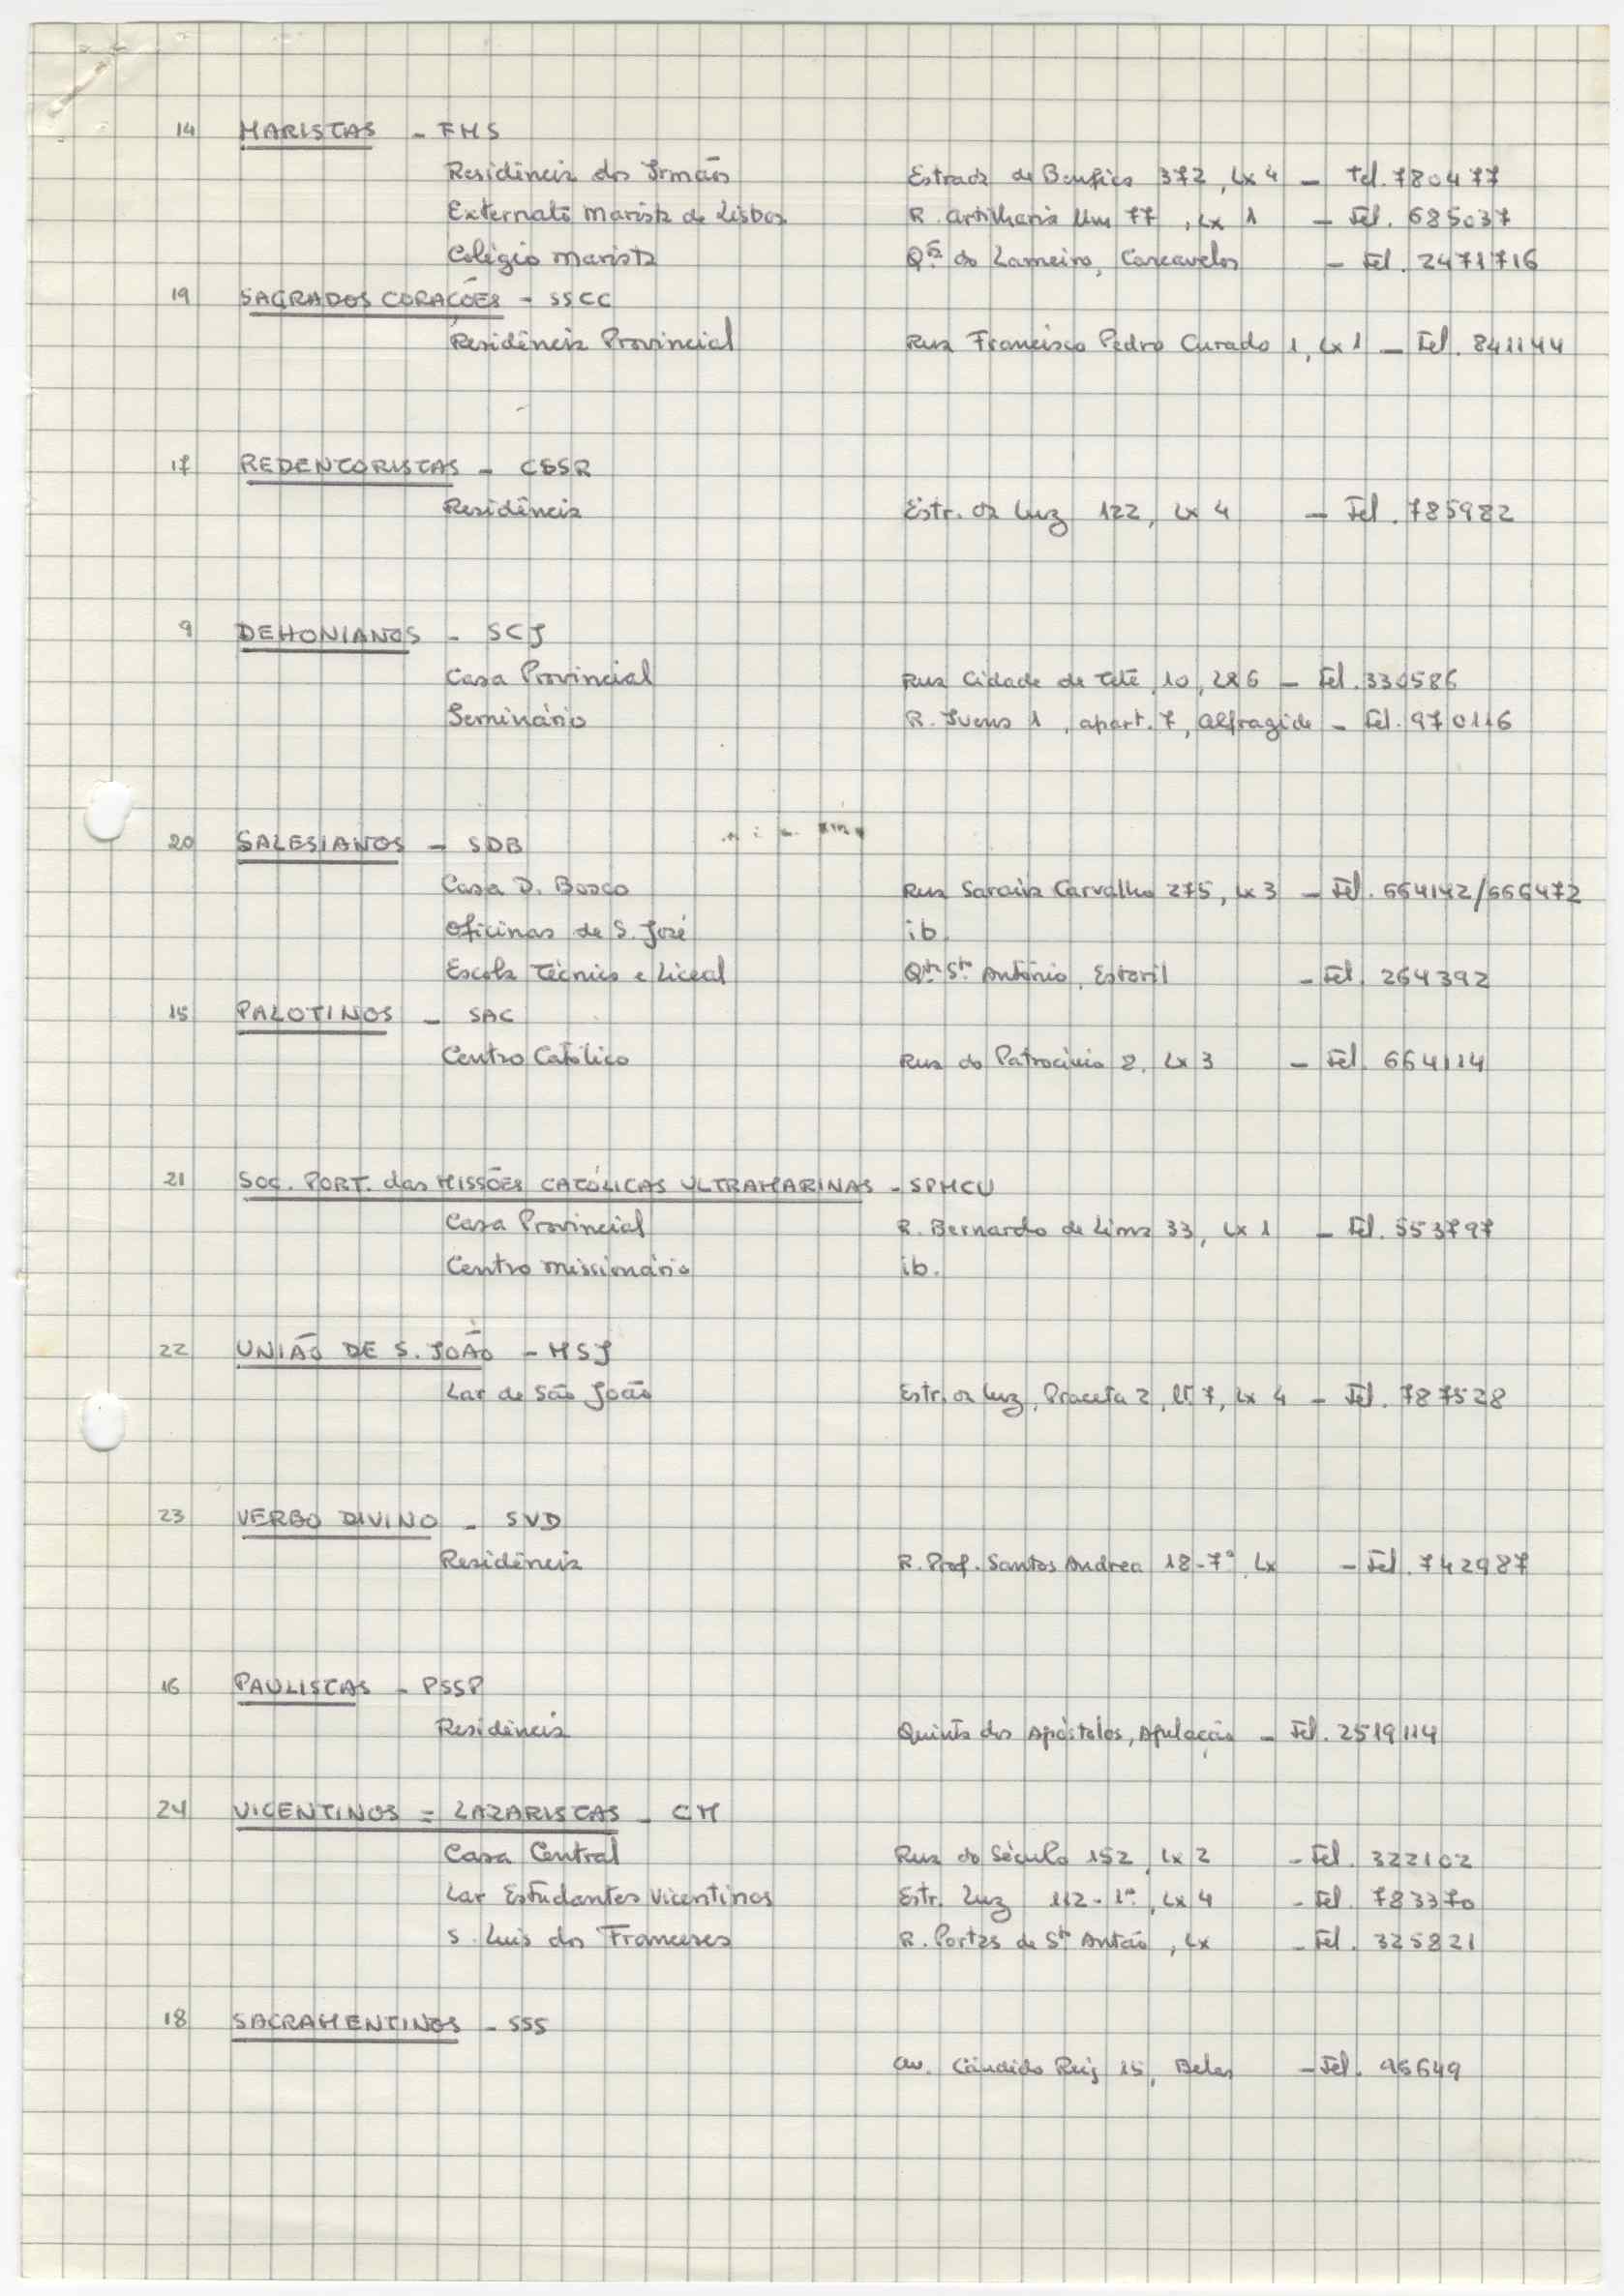 14 MARISTAS - FMS
Residência dos Irmãos Estrada de Benfica 372, Lx 4 - Tel. 780477
Externato Marista de Lisboa R. Artilharia Um 77, Lx 1 - Tel. 685037
Colégio Marista Qtª do Lameiro, Carcavelos - Tel. 2471716
19 SAGRADOS CORAÇÕES - SSCC
Residência Provincial Rua Francisco Pedro Curado 1, Lx 1 - Tel. 841144
17 REDENTORISTAS - CSSR
Residência Estr. da Luz 122, Lx 4 - Tel. 785982
9 DEHONIANOS - SCJ
Casa Provincial Rua Cidade de Tete, 10, Lx 6 - Tel. 330586
Seminário R. Ivens 1, apart. 7, Alfragide - Tel. 970116
20 SALESIANOS - SDB
Casa D. Bosco Rua Saraiva Carvalho 275, Lx 3 - Tel. 664142/666472
Oficinas de S. José ib.
Escola Técnica e Liceal Qta Sto António, Estoril - Tel. 264392
15 PALOTINOS - SAC
Centro Católico Rua do Patrocínio 8, Lx 3 - Tel. 664114
21 SOC. PORT. das MISSÕES CATÓLICAS ULTRAMARINAS - SPMCU
Casa Provincial R. Bernardo de Lima 33, Lx 1 - Tel. 553797
Centro missionário ib.
22 UNIÃO DE S. JOÃO - MSJ
Lar de São João Estr. da Luz, Praceta 2, lt. 7, Lx 4 - Tel. 787528
23 VERBO DIVINO - SVD
Residência R. Prof. Santos Andrea 18-7º, Lx - Tel. 742987
16 PAULISTAS - PSSP
Residência Quinta dos Apóstolos, Apelação - Tel. 2519114
24 VICENTINOS = LAZARISTAS - CM
Casa Central Rua do Século 152, Lx 2 - Tel. 322102
Lar Estudantes Vicentinos Estr. Luz 112-1º, Lx 4 - Tel. 783370
S. Luís dos Franceses R. Portas de Sto Antão, Lx - Tel. 325821
18 SACRAMENTINOS - SSS
Av. Cândido Reis 15, Belas - Tel. 95649